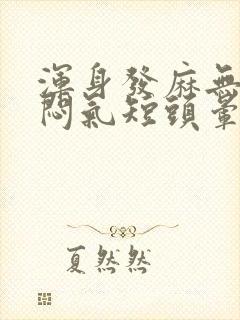 渾身發麻無
悶氣短頭暈
夏然然